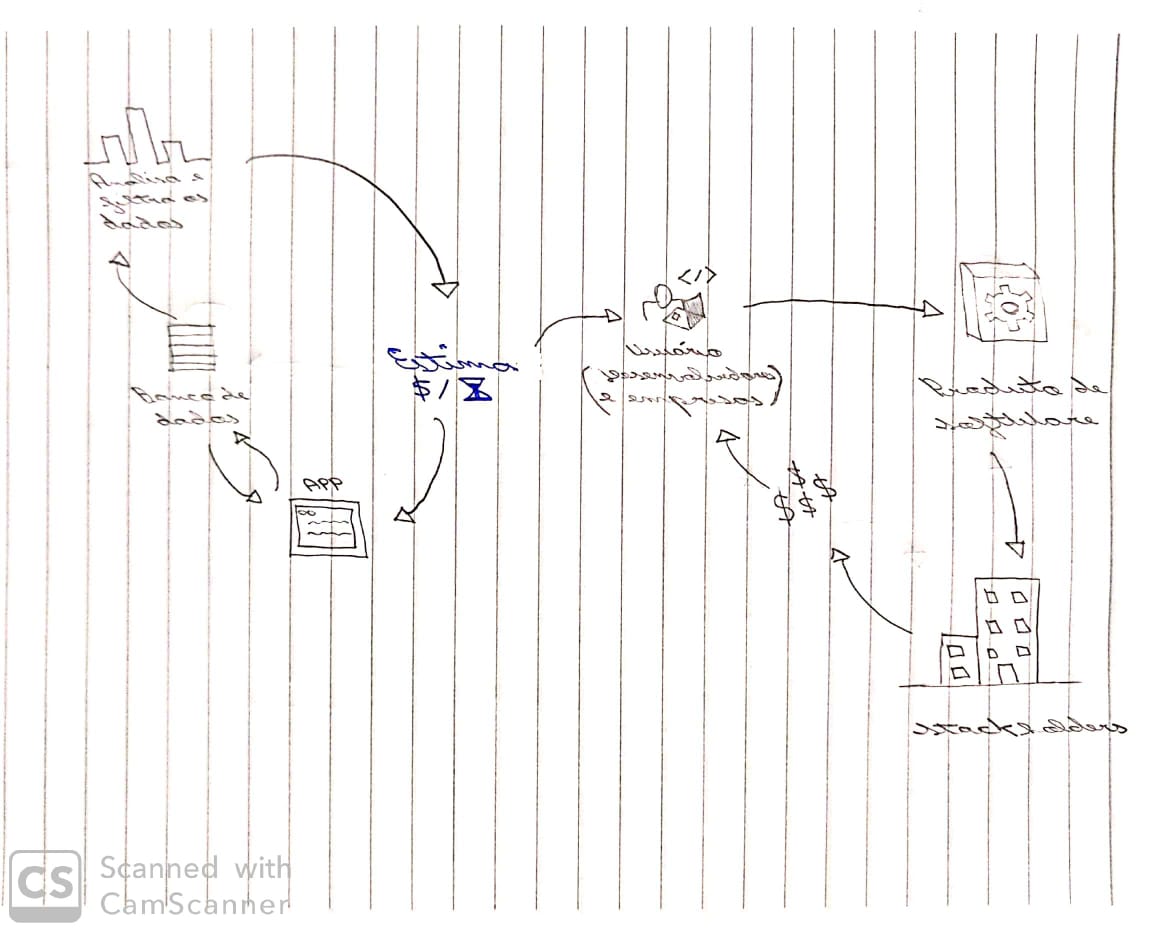 Analisa e
filtra os
dados
Banco de
dados
APP
"Estima"
$ /
</>
Usuário
(Desenvolvedores
e empresas)
$ $
$ $
Produto de
Software
stackholders
CS
Scanned with
CamScanner